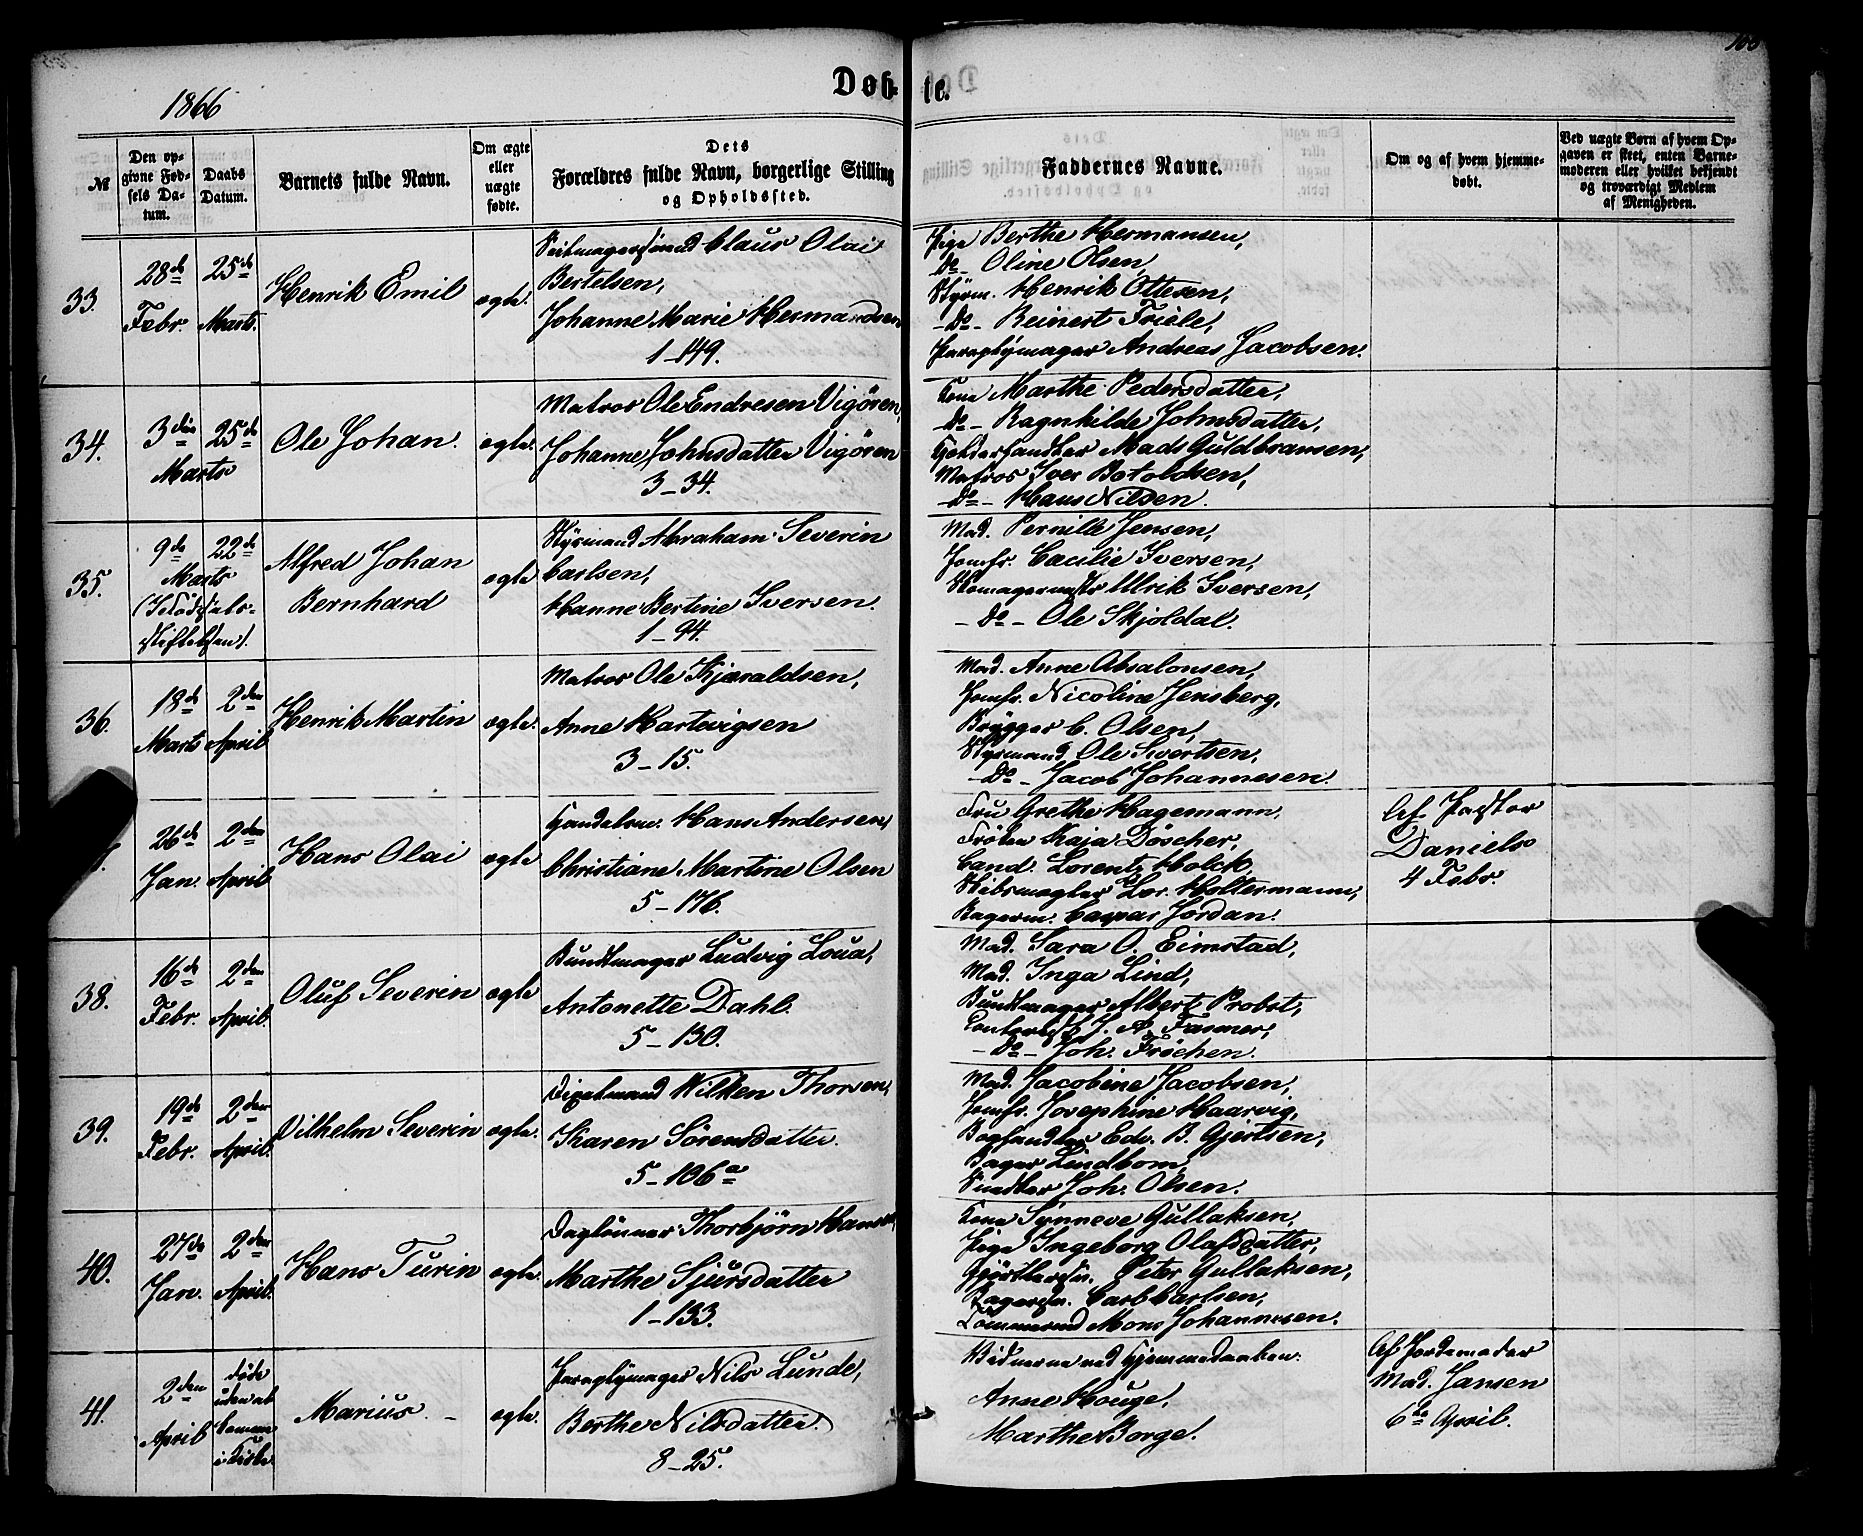 1866
Døb-te.
№
Den opgivne Fødsels Datum.
Daabs Datum.
Barnets fulde Navn.
Om ægte eller uægte fødte.
Dets Forældres fulde Navn, borgerlige Stilling og Opholdssted.
Faddernes Navne.
Om og af hvem hjemmedøbt.
Ved uægte Børn af hvem Opgaven er skeet, enten Barnemoderen eller hvilket bekjendt og troværdigt Medlem af Menigheden.
33.
28de Febr.
25de Marts.
Henrik Emil
ægte.
Claus Olai
Bertelsen,
Johanne Marie Hermandsen
1-149.
Pige Berthe Hermansen,
Do- Oline Olsen,
Styrm. Henrik Ottesen,
-Do- Reinert Friele,
Paraplymager Andreas Jacobsen.
34.
3die
25de
Marts
Ole Johan.
ægte.
Matros Ole Endresen Vigören,
Johanne Johnsdatter Vigören
3-34.
Kone Marthe Pedersdatter,
Do- Ragnhilde Johnsdatter,
Mads Guldbransen,
Matros Iver Botoldsen,
-Do- Hans Nilsen.
35.
9de
22de
Marts
Alfred Johan
Bernhard
ægte
Styrmand Abraham Severin
Carlsen,
Hanne Bertine Iversen.
1-94.
Mad. Pernille Jensen,
Jomfr. Cacilie Iversen,
Ulrik Iversen,
-Do- Ole Skjoldal.
36.
18de Marts
2den April
Henrik Martin
ægte.
Matros Ole Kjæraldsen,
Anne Hartvigsen
3-15.
Mad. Anne Absalonsen,
Jomfr. Nicoline Jensberg,
Brygger C. Olsen,
Styrmand Ole Sivertsen,
-Do- Jacob Johannesen.
26de Jan.
2den April
Hans Olai
ægte
Handelsm. Hans Andersen,
Christiane Martine Olsen
5-176.
Fru Grethe Hagemann,
Frøken Kaja Döscher,
Cand. Lorentz Holck
Skibsmægler Lor. Holtermann,
Bagerm. Caspar Jordan.
Af Pastor
Daniels
4 Febr.
38.
16de Febr.
2den April.
Oluf Severin
ægte
Bundtmager Ludvig Loua,
Antonette Dahl.
5-130.
Mad. Sara O. Eimstad,
Mad. Inga Lind,
Bundtmager Albert Probst,
J. A. Fasmer,
-Do- Joh. Fröchen.
39.
19de Febr.
2den April.
Vilhelm Severin
ægte.
Wilken Thorsen,
Karen Sörensdatter.
5-106a
Mad. Jacobine Jacobsen,
Jomfr. Josephine Haarvig,
Boghandler Edv. B. Gjertsen,
Bager Lindbom,
Snedker Joh. Olsen.
40.
27de Jan.
2den April.
Hans Turin
ægte.
Daglönner Thorbjörn Hansen,
Marthe Sjursdatter
1-133.
Kone Synneve Gullaksen,
Pige Ingeborg Olafsdatter,
Peter Gullaksen,
Carl Carlsen,
Tömmermd Mons Johannesen.
41.
2den April
døde
uden at
komme
i Kirke
Marius.
ægte.
Paraplymager Nils Lunde,
Berthe Nilsdatter.
8-25.
Vidnerne ved Hjemmedaaben:
Anne Houge,
Marthe Borge.
Af Jordemoder
Mad. Jansen
6te April.